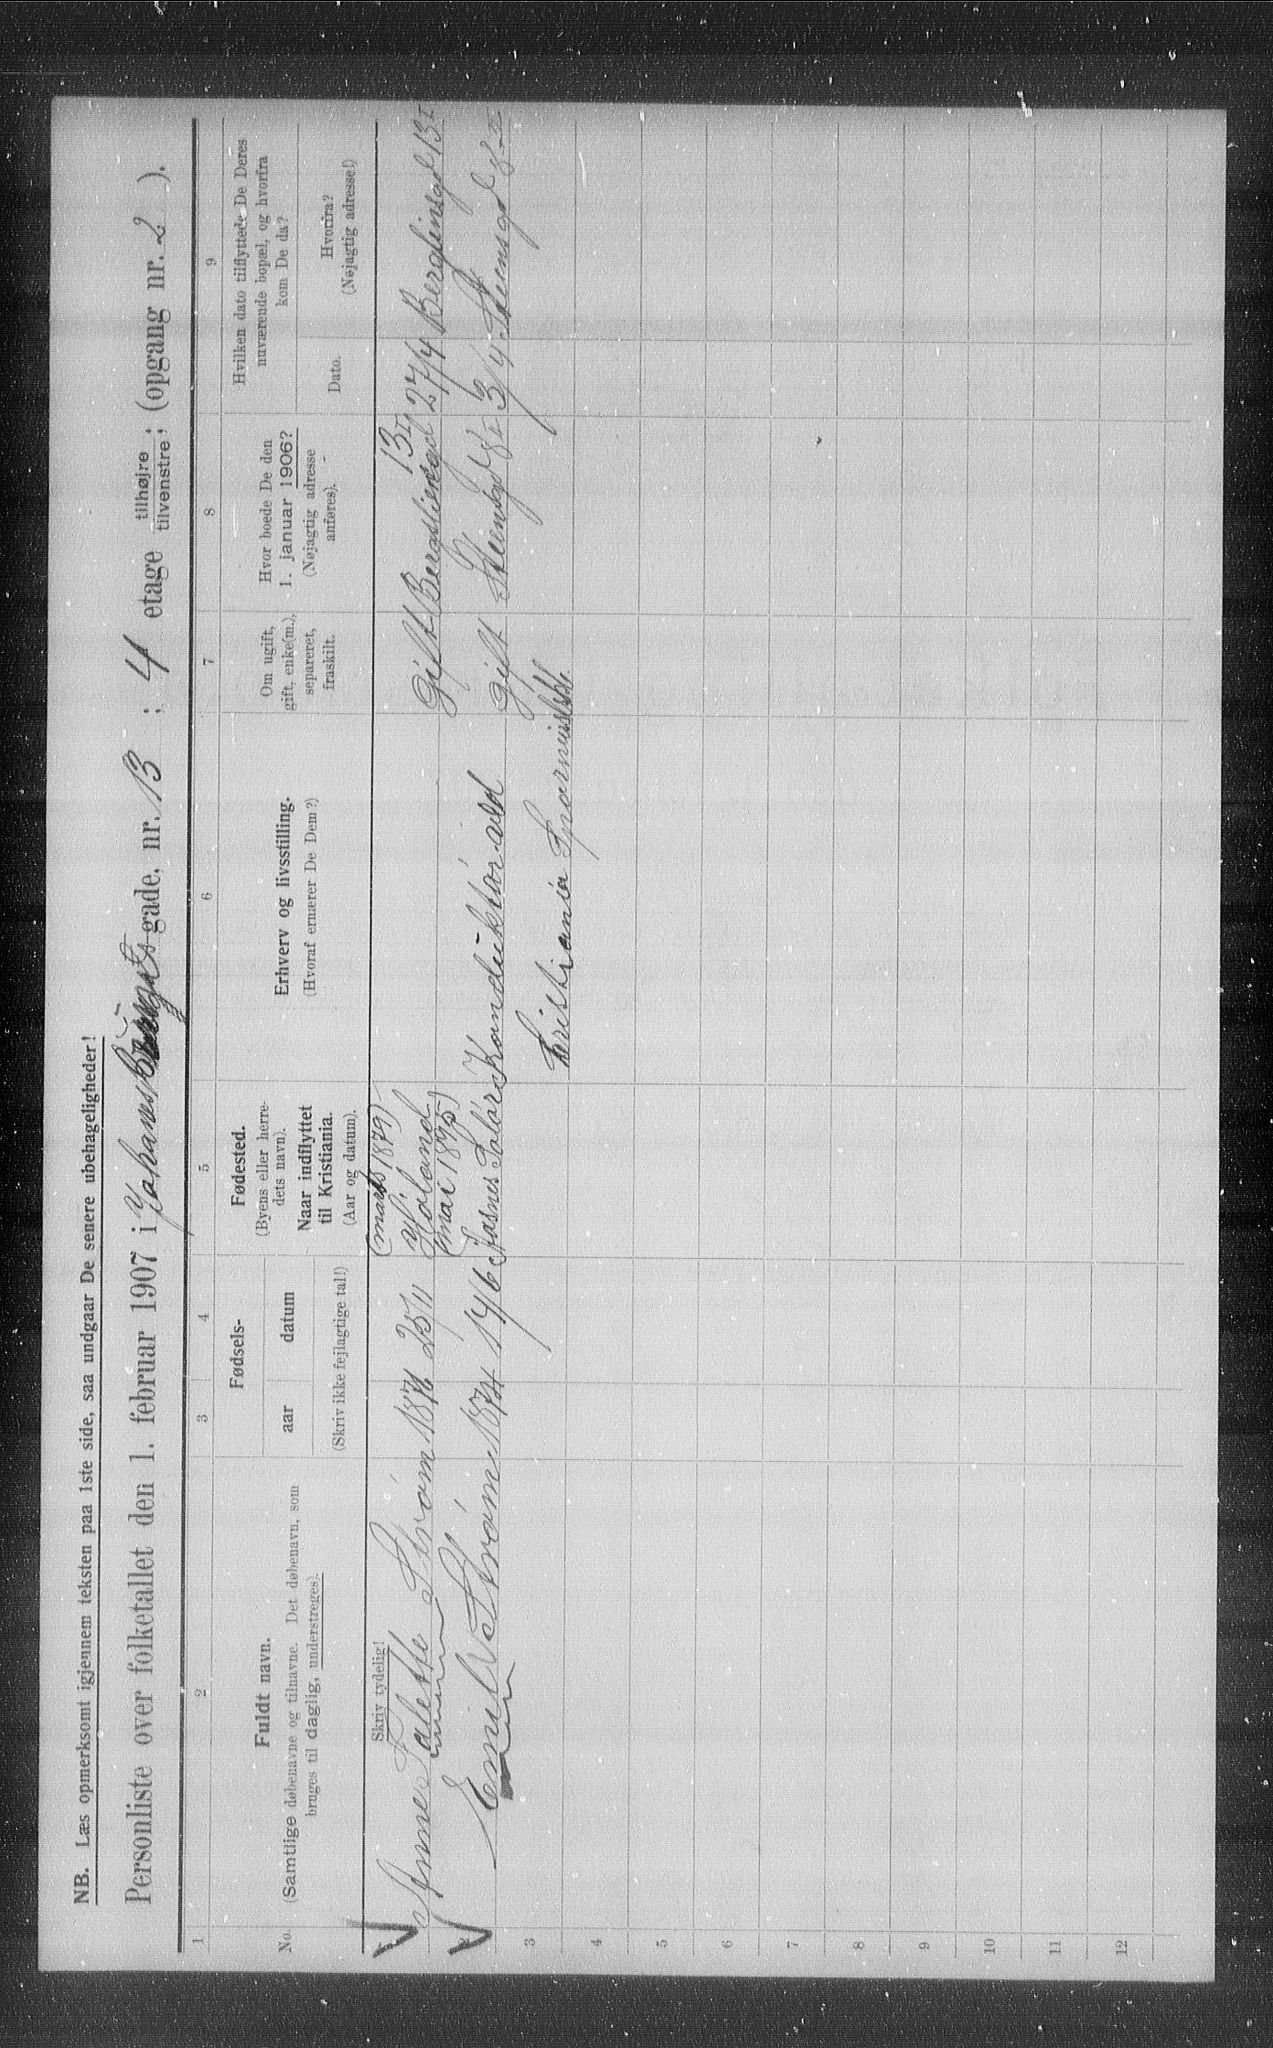 NB. Læs opmerksomt igjennem teksten paa 1ste side, saa undgaar De senere ubehageligheder!
Personliste over folketallet den 1. februar 1907 i Johannes Bruns gade, nr. 13 ; 4 etage tilhøjre tilvenstre; (opgang nr. 2 ).
1 2 3 4 5 6 7 8 9
No.
Fuldt navn.
(Samtlige døbenavne og tilnavne. Det døbenavn, som
bruges til daglig, understreges).
Fødsels-
aar datum
(Skriv ikke fejlagtige tal!)
Fødested.
(Byens eller herre-
dets navn).
Naar indflyttet
til Kristiania.
(Aar og datum).
Erhverv og livsstilling.
(Hvoraf ernærer De Dem?)
Om ugift,
gift, enke(m.),
separeret,
fraskilt.
Hvor boede De den
1. januar 1906?
(Nøjagtig adresse
anføres).
Hvilken dato tilflyttede De Deres
nuværende bopæl, og hvorfra
kom De da?
Dato.
Hvorfra?
(Nøjagtig adresse!)
Skriv tydelig!
Anne Talette Strøm 1876 25/11 Høland gift 13 I 27/4 13 I
Emil Strøm 1874 14/6 Aasnes Solør Konduktør ved gift 3/4
Kristiania Sporveisselsk.
3
4
5
6
7
8
9
10
11
12